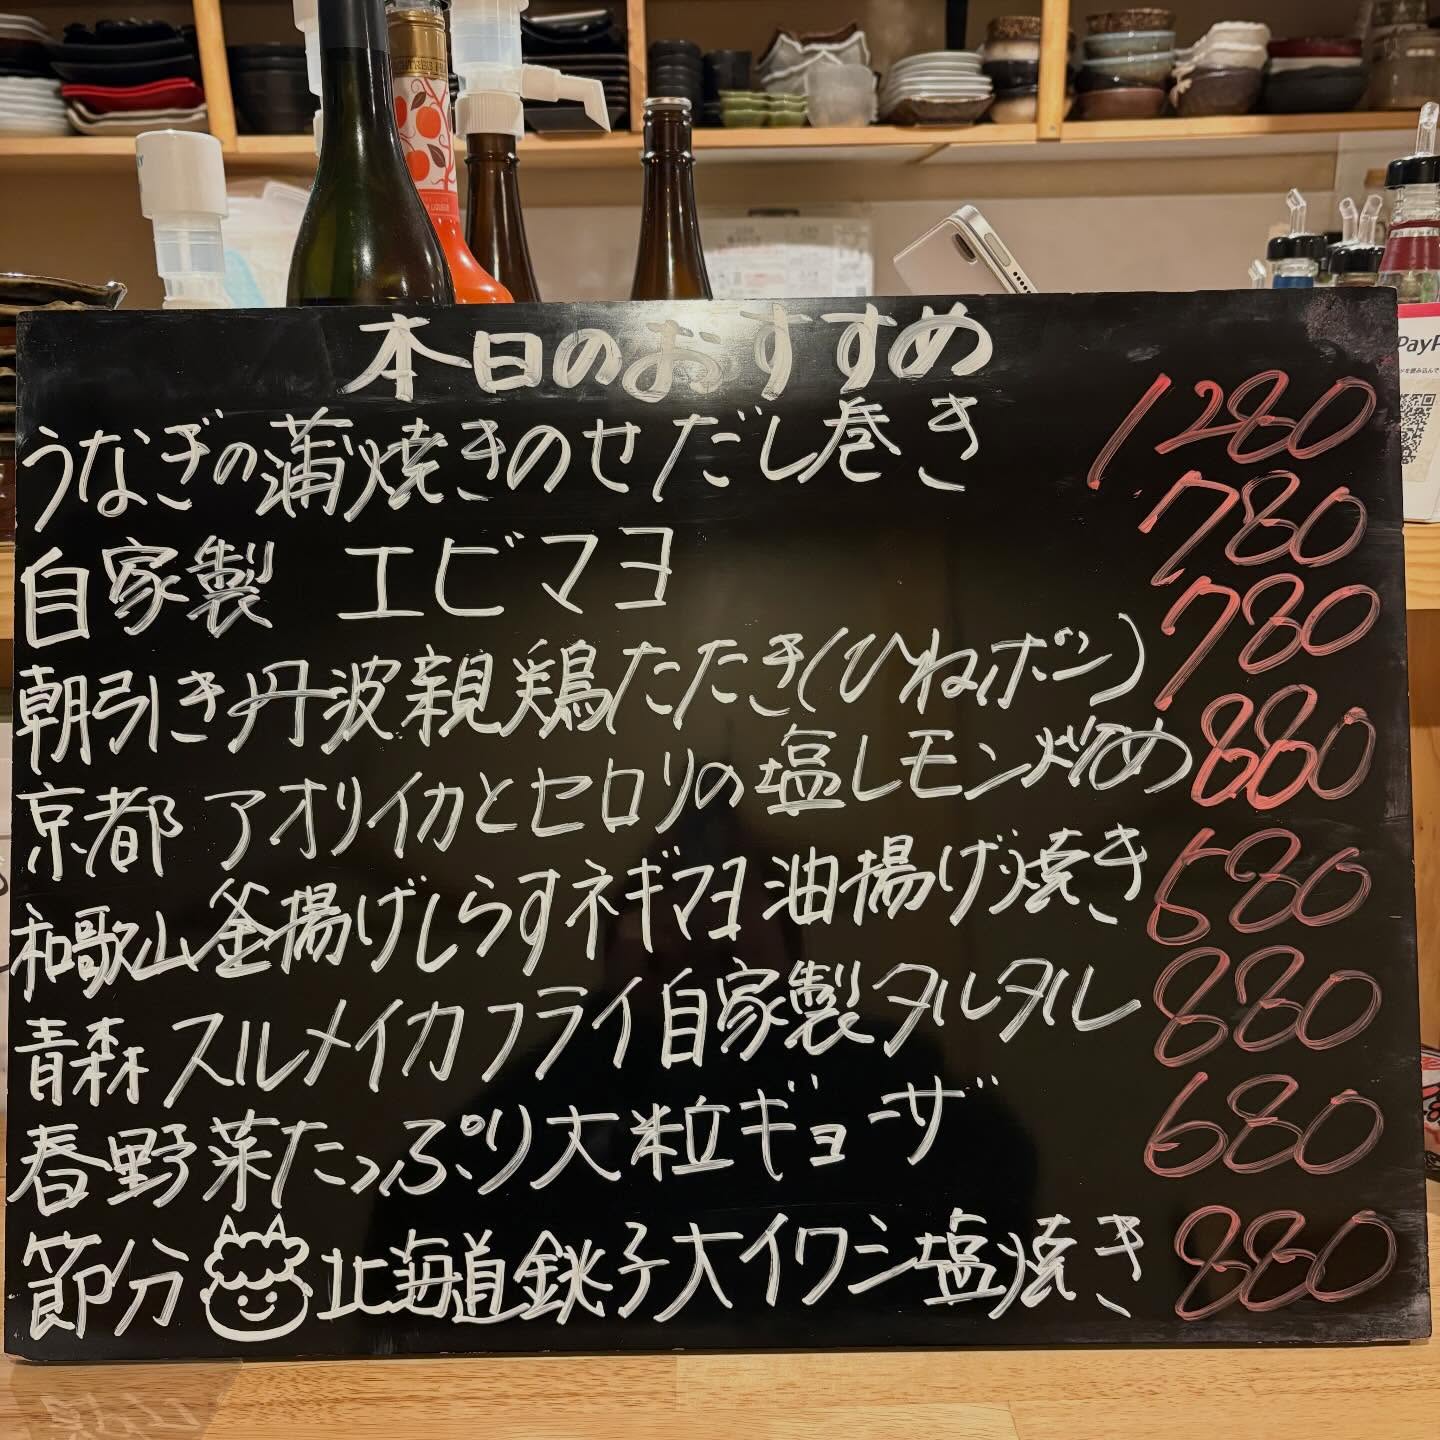 本日のおすすめ
うなぎの蒲焼きのせだし巻き 1280
自家製 エビマヨ 780
朝引き丹波親鶏たたき(ひねポン) 780
京都 アオリイカとセロリの塩レモン炒め 880
和歌山釜揚げしらすネギマヨ油揚げ焼き 580
青森 スルメイカフライ自家製タルタル 880
春野菜たっぷり大粒ギョーザ 680
節分 北海道銚子大イワシ塩焼き 880
PayP